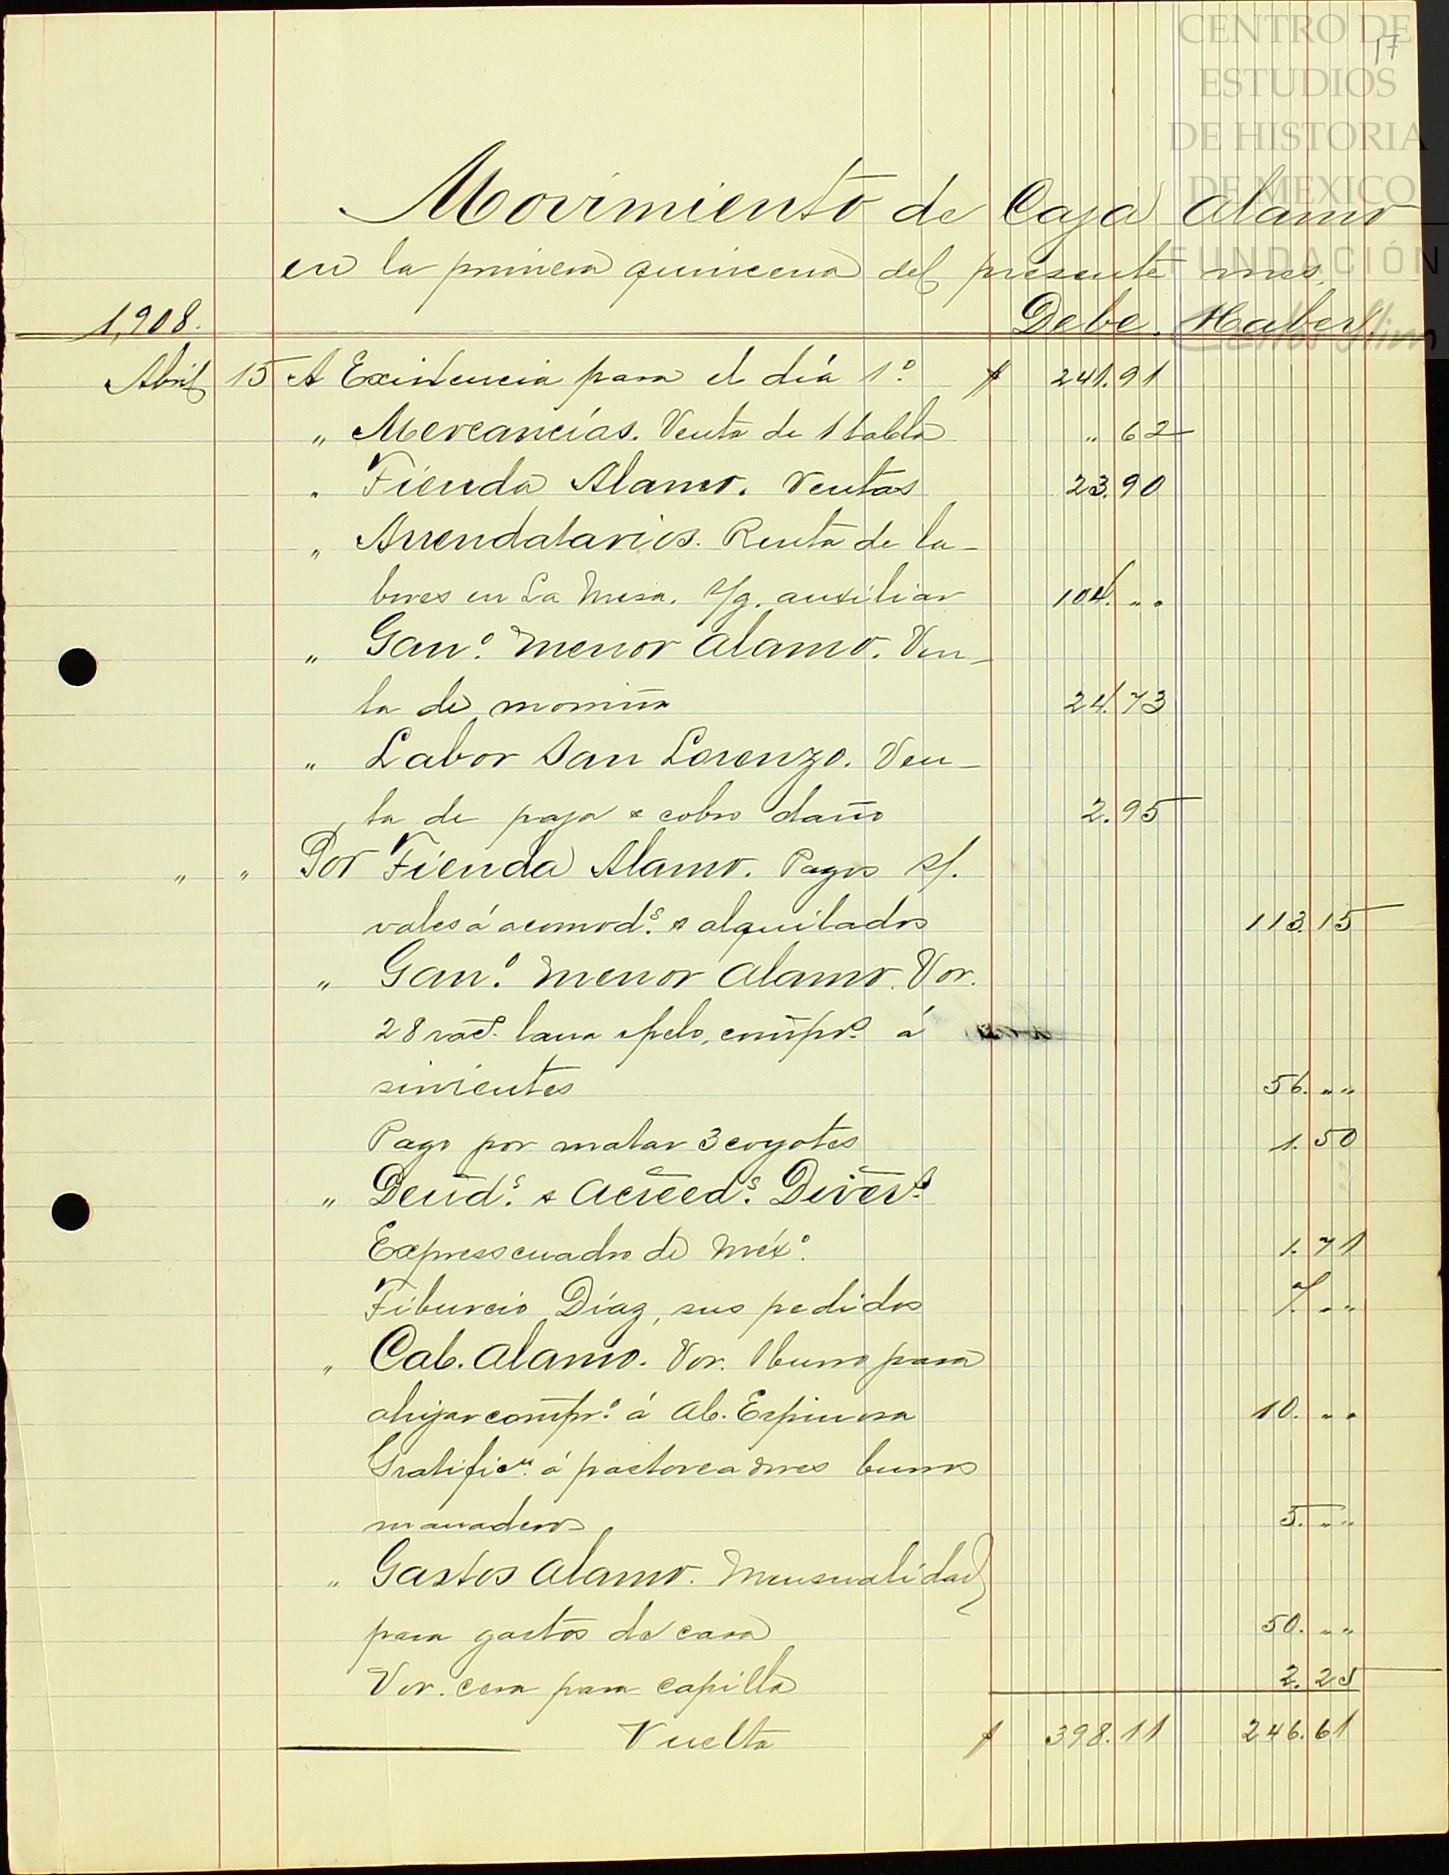 CENTRO DE
ESTUDIOS
DE HISTORIA
DE MEXICO
FUNDACIÓN
Carlos Slim
17
Movimiento de Caja Alamo
en la primera quincena del presente mes.
1,908. Debe. Haber.
Abril 15 A Existencia para el día 1º $ 241.91
" Mercancías. Venta de 1 tabla " 62
" Tienda Alamo. Ventas 23.90
" Arrendatarios. Renta de la-
bores en La Mesa. S/g. auxiliar 104. " "
" Ganº. menor Alamo. Ven-
ta de 24.73
" Labor San Lorenzo. Ven-
ta de paja & cobro daño 2.95
" " Por Tienda Alamo. Pagos s/.
vales á acomods. & alquilados 113.15
" Ganº. menor Alamo. Vor.
28 lana & pelo, comprº. á
sirvientes 56. " "
Pago por matar 3 coyotes 1.50
" Deuds. & Acreeds. Divers.
Express cuadro de Méxº. 1.71
Tiburcio Díaz, sus pedidos 7. " "
" Cab. Alamo. Vor. 1 burro para
ahijar comprº. á Ab. Espinosa 10. " "
Gratificn. á pastoreadores burros
manaderos 5. " "
" Gastos Alamo. Mensualidad
para gastos de casa 50. " "
Vor. cera para capilla 2.25
Vuelta $ 398.11 246.61